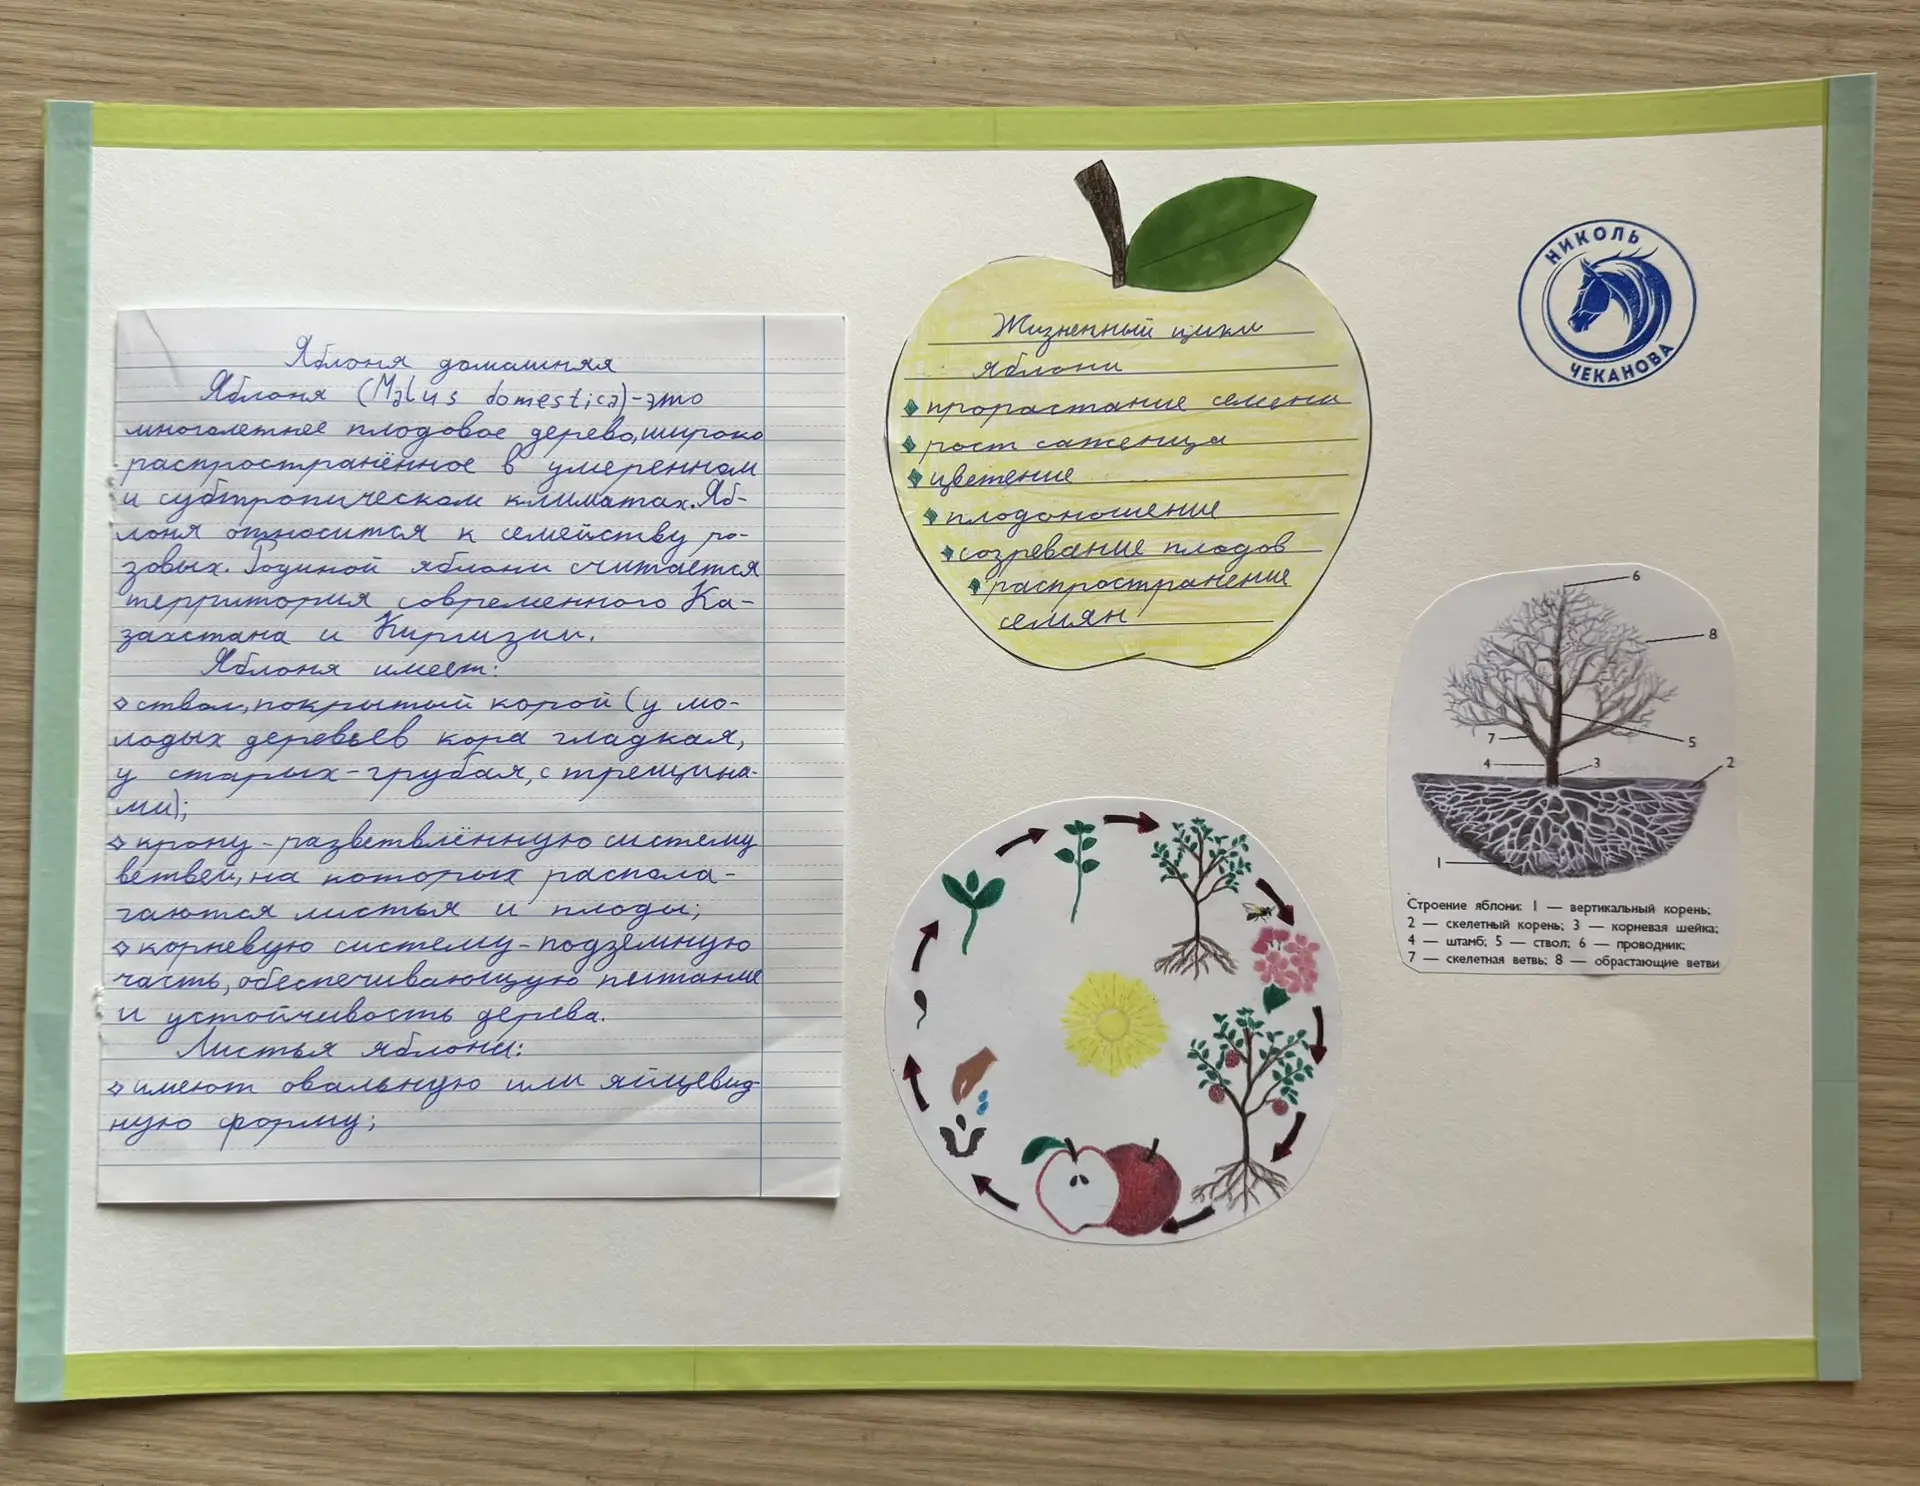 Яблоня домашняя
Яблоня (Malus domestica)-это
многолетнее плодовое дерево, широко
распространённое в умеренном
и субтропическом климатах. Яб-
лоня относится к семейству ро-
зовых. Родиной яблони считается
территория современного Ка-
захстана и Киргизии.
Яблоня имеет:
ствол, покрытый корой (у мо-
лодых деревьев кора гладкая,
у старых-грубая, с трещина-
ми);
крону-разветвлённую систему
ветвей, на которых распола-
гаются листья и плоды;
корневую систему-подземную
часть, обеспечивающую питание
и устойчивость дерева.
Листья яблони:
имеют овальную или яйцевид
ную форму;
Жизненный цикл
яблони
прорастание семени
рост саженца
цветение
плодоношение
созревание плодов
распространение
семян
НИКОЛЬ
ЧЕКАНОВА
6
8
7
5
4
3
2
1
Строение яблони: 1 — вертикальный корень;
2 — скелетный корень; 3 — корневая шейка;
4 — штамб; 5 — ствол; 6 — проводник;
7 — скелетная ветвь; 8 — обрастающие ветви